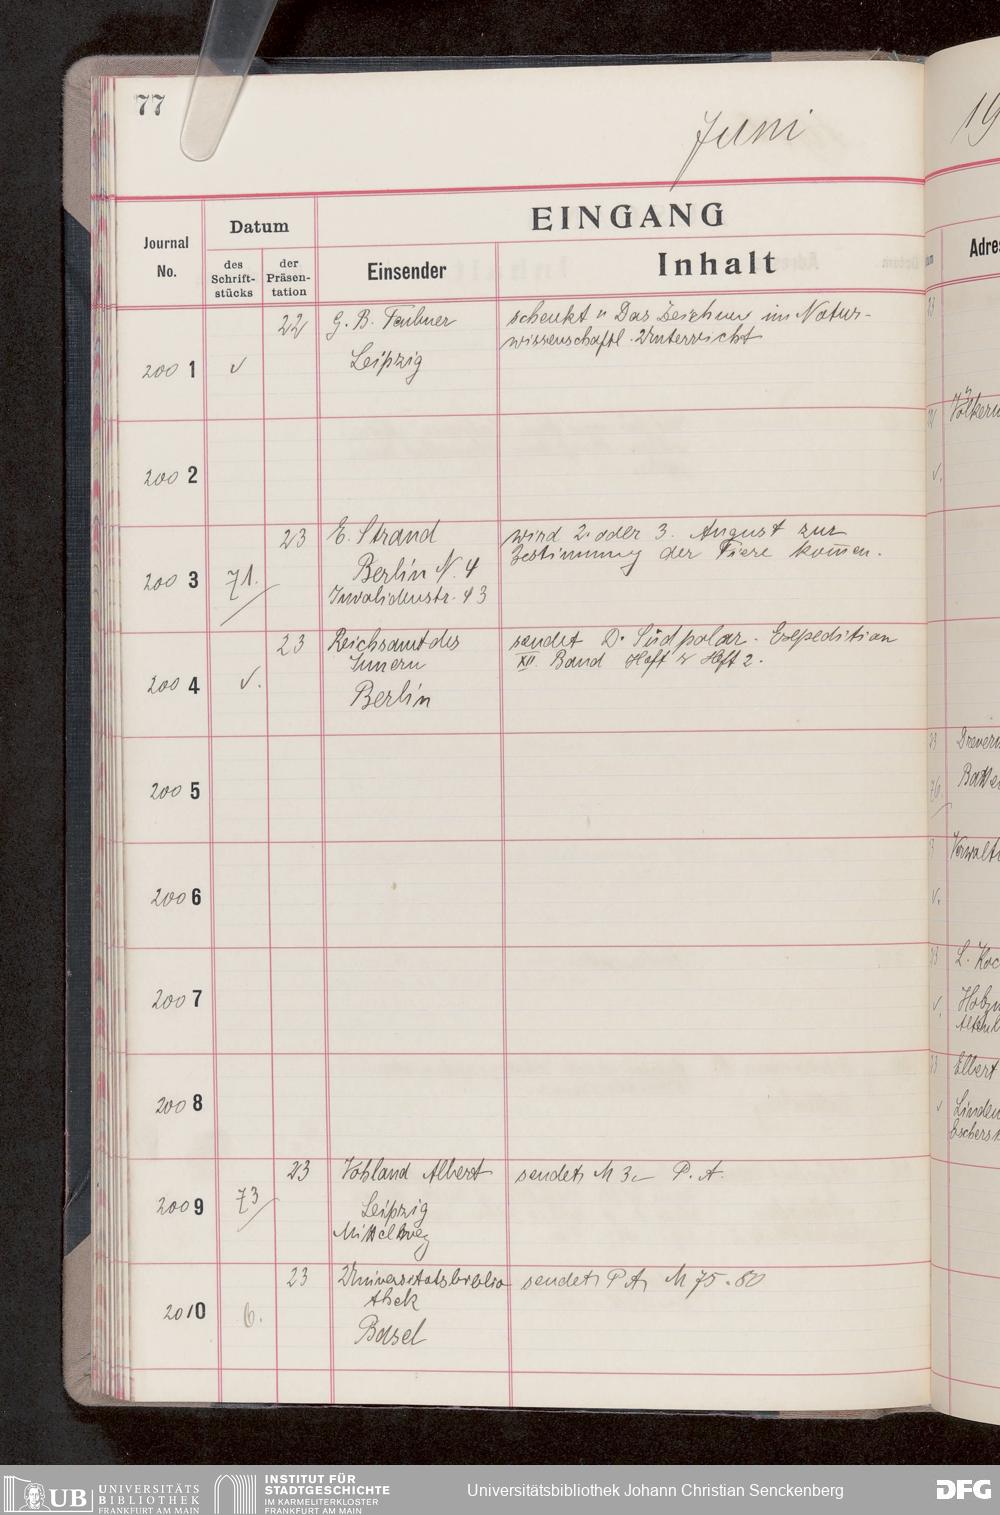 77
Juni
19
EINGANG
Journal No.
Datum
des Schrift-stücks
der Präsen-tation
Einsender
Inhalt
Adre
22 G. B. Teubner schenkt " Das Zeichnen im Natur-
wissenschaftl. Unterricht
2001 v Leipzig
2002
23 E. Strand wird 2. oder 3. August zur
Bestimmung der Tiere kom̅en.
2003 71. Berlin N. 4
Invalidenstr. 43
23 Reichsamt des sendet D. Südpolar. Expedition
Innern XII. Band Heft 2.
2004 v. Berlin
2005
2006
2007
2008
23 Vohland Albert sendet M 3.– P. A.
2009 73 Leipzig
Mittelweg
23 Universitätsbiblio sendet P A, M 75.80
thek
2010 6. Basel
23
Völkerm
v.
Verwalt
v.
L. Koc
v.
Elbert
v Linden
Eschersh
UB UNIVERSITÄTS
BIBLIOTHEK
FRANKFURT AM MAIN
INSTITUT FÜR
STADTGESCHICHTE
IM KARMELITERKLOSTER
FRANKFURT AM MAIN
Universitätsbibliothek Johann Christian Senckenberg
DFG